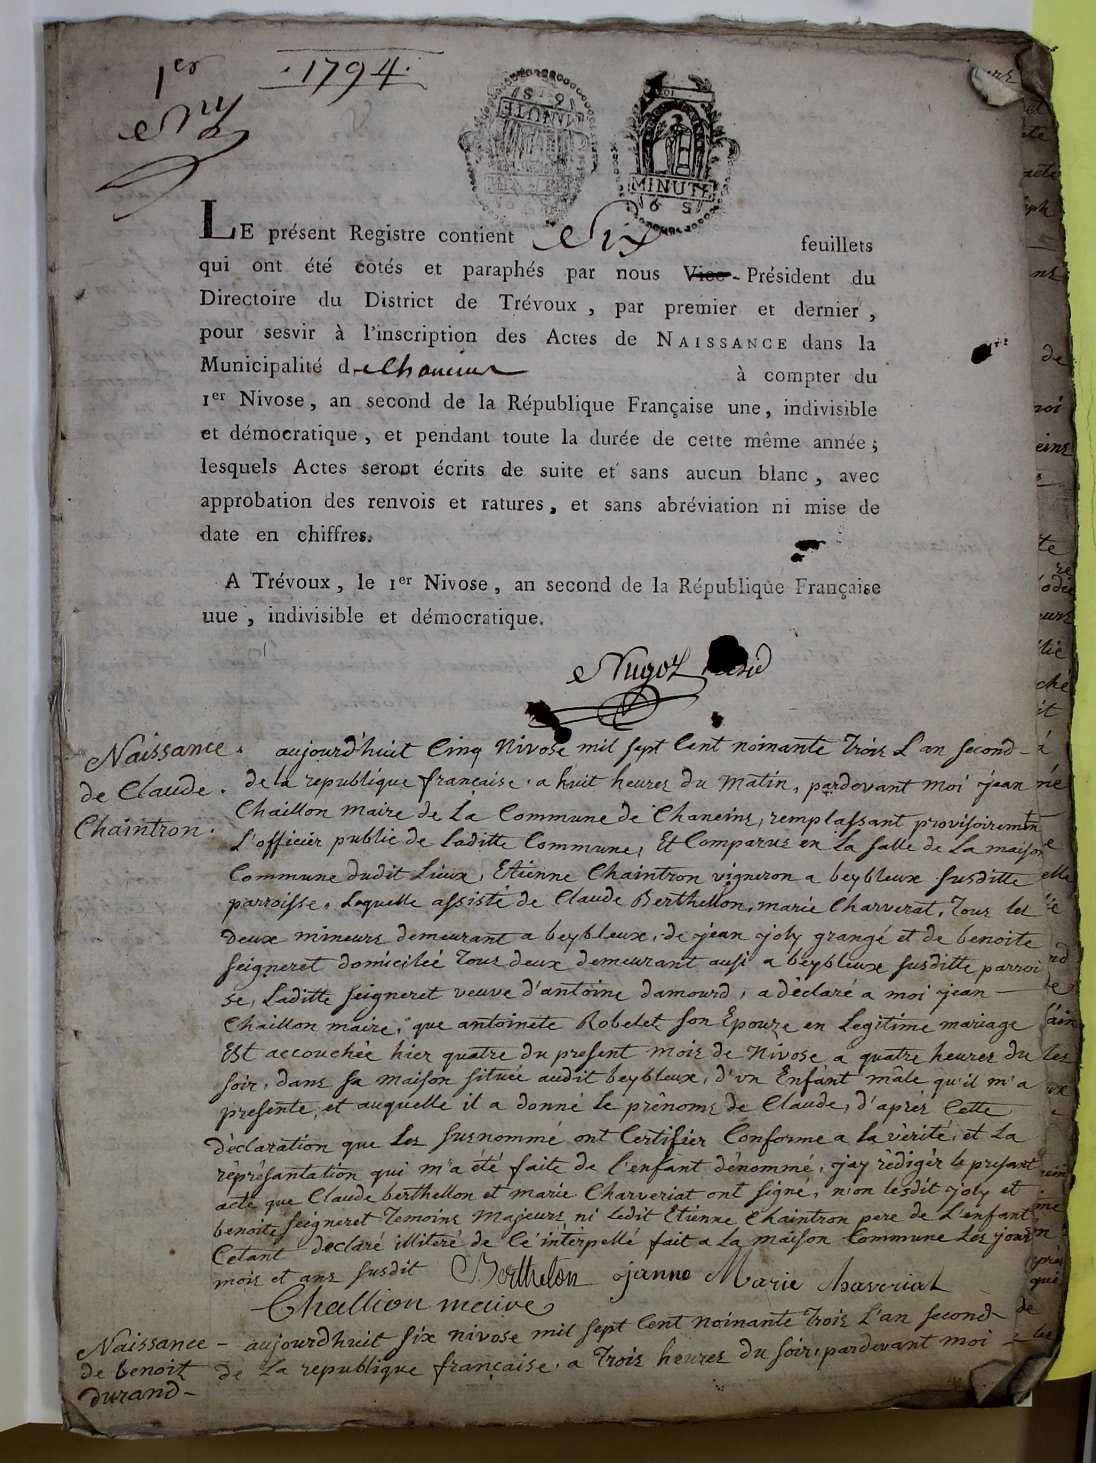 1er
· 1794 ·
MINUTE
MINUTE
LE présent Registre contient Six feuillets
qui ont été cotés et paraphés par nous Vice-Président du
Directoire du District de Trévoux, par premier et dernier,
pour sesvir à l'inscription des Actes de NAISSANCE dans la
Municipalité de Chaneins à compter du
1er Nivose, an second de la République Française une, indivisible
et démocratique, et pendant toute la durée de cette même année;
lesquels Actes seront écrits de suite et sans aucun blanc, avec
approbation des renvois et ratures, et sans abréviation ni mise de
date en chiffres.
A Trévoux, le 1er Nivose, an second de la République Française
uue, indivisible et démocratique.
Naissance
de Claude
Chaintron
aujourd'huit Cinq Nivose mil sept Cent noinante Trois L'an second
de la republique française, a huit heures du matin, pardevant moi jean
Chaillon maire de La Commune de Chaneins, remplassant provisoiremen
L'officier public de Laditte Commune, Et Comparus en La salle de La maison
Commune dudit Lieux, Etienne Chaintron vigneron a beybleux susditte
parroisse, Lequelle assisté de Claude Berthellon, marie Charverat, Tous les
deux mineurs demeurant a beybleux, de jean joly grangé et de benoite
seigneret domiciliée Tous deux demeurant ausi a beybleux susditte parroi
se, Laditte seigneret veuve d'antoine damourd, a déclaré a moi jean
Chaillon maire, que antoinete Robelet son Epouze en Legitime mariage
Est accouchée hier quatre du present mois de Nivose a quatre heures du
soir, dans sa maison située audit beybleux, d'vn Enfant mâle qu'il m'a
presenté, et auquelle il a donné Le prênoms de Claude, d'après Cette
déclaration que Les surnommé ont Certifier Conforme a La vérité, et La
réprésantation qui m'a été faite de l'enfant dénommé, jay rêdigér le presant
acte que Claude berthellon et marie Charveriat ont signé, non lesdit joly et
benoite seigneret Temoins majeurs ni Ledit Etienne Chaintron pere de L'enfant
Cetant declaré illiteré de Ce interpellé fait a La maison Commune Les jour
mois et ans susdit Berthelon janno Marie chaveriat
Challion maire
Naissance
de benoit
durand
aujourdhuit six nivose mil sept Cent noinante Trois L'an second
de La republique française, a Trois heures du soir, pardevant moi